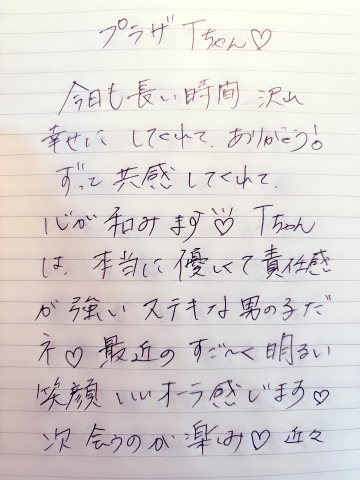 プラザ Tちゃん♡
今日も長い時間、沢山
幸せに してくれて、ありがとう!
ずっと 共感 してくれて、
心が 和みます♡ Tちゃん
は、本当に 優しくて 責任感
が 強い ステキな 男の子だ
ネ♡ 最近の すご〜く 明るい
笑顔 いいオーラ 感じます♡
次 会うのが 楽しみ♡ 近々